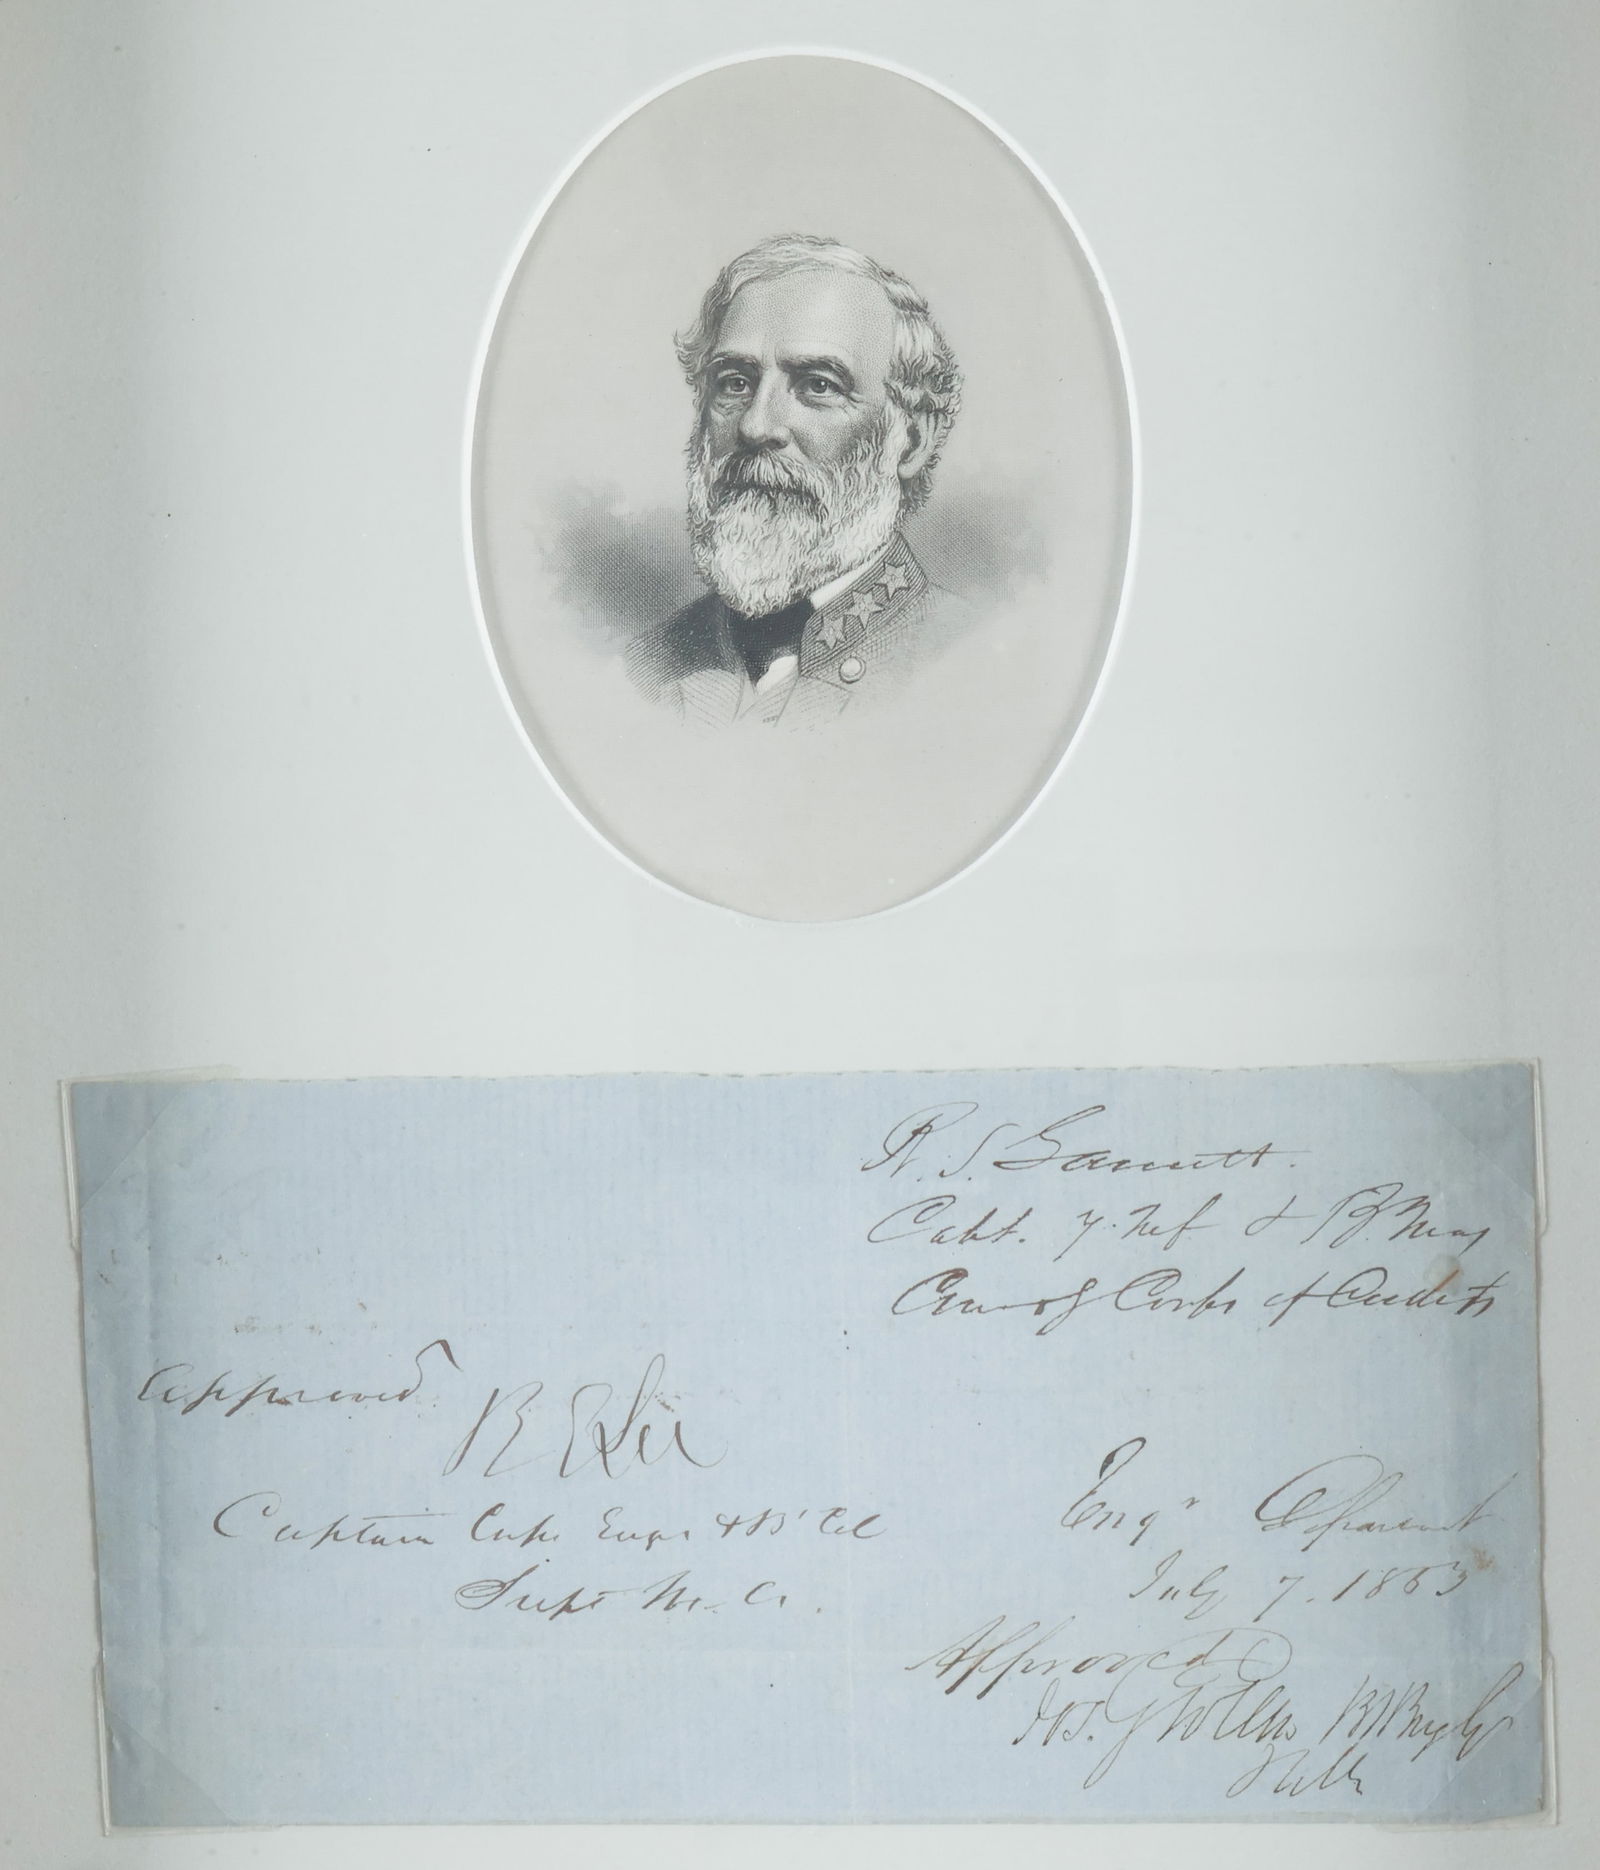 R. S. Garnett.
Capt. 7. Inf. & B. Maj
Com of Corps of Cadets
Approved
R E Lee
Captain Corps Engrs & Bt Col
Supt M. A.
Engr Department
July 7. 1853
Approved
Jos. G Totten Bt Brig Gl